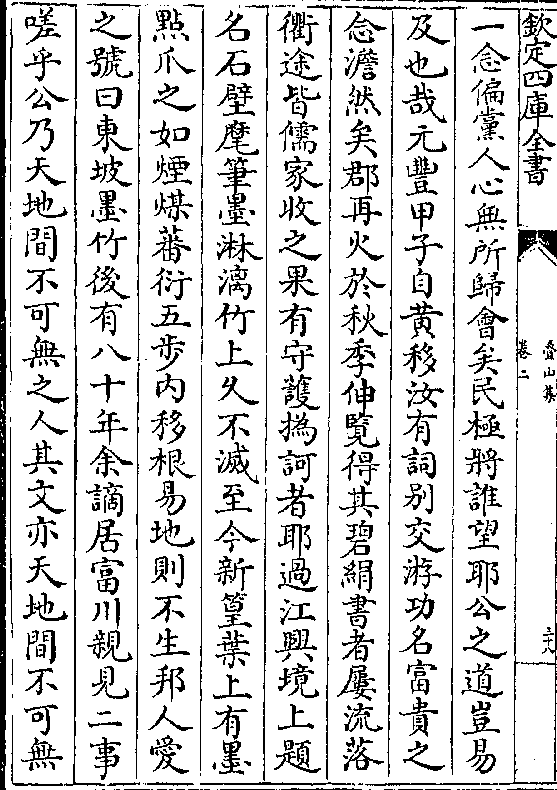 欽定四庫全書
疊山集
卷二
二十八
一念偏黨人心無所歸會矣民極將誰望耶公之道豈易
及也哉元豐甲子自黄移汝有詞别交游功名富貴之
念澹然矣郡再火於秋季伸覽得其碧絹書者屢流落
衢途皆儒家收之果有守䕶撝訶者耶過江興境上題
名石壁麾筆墨淋漓竹上久不滅至今新篁葉上有墨
㸃爪之如煙煤蕃衍五步内移根易地則不生邦人愛
之號曰東坡墨竹後有八十年余謫居富川親見二事
嗟乎公乃天地間不可無之人其文亦天地間不可無